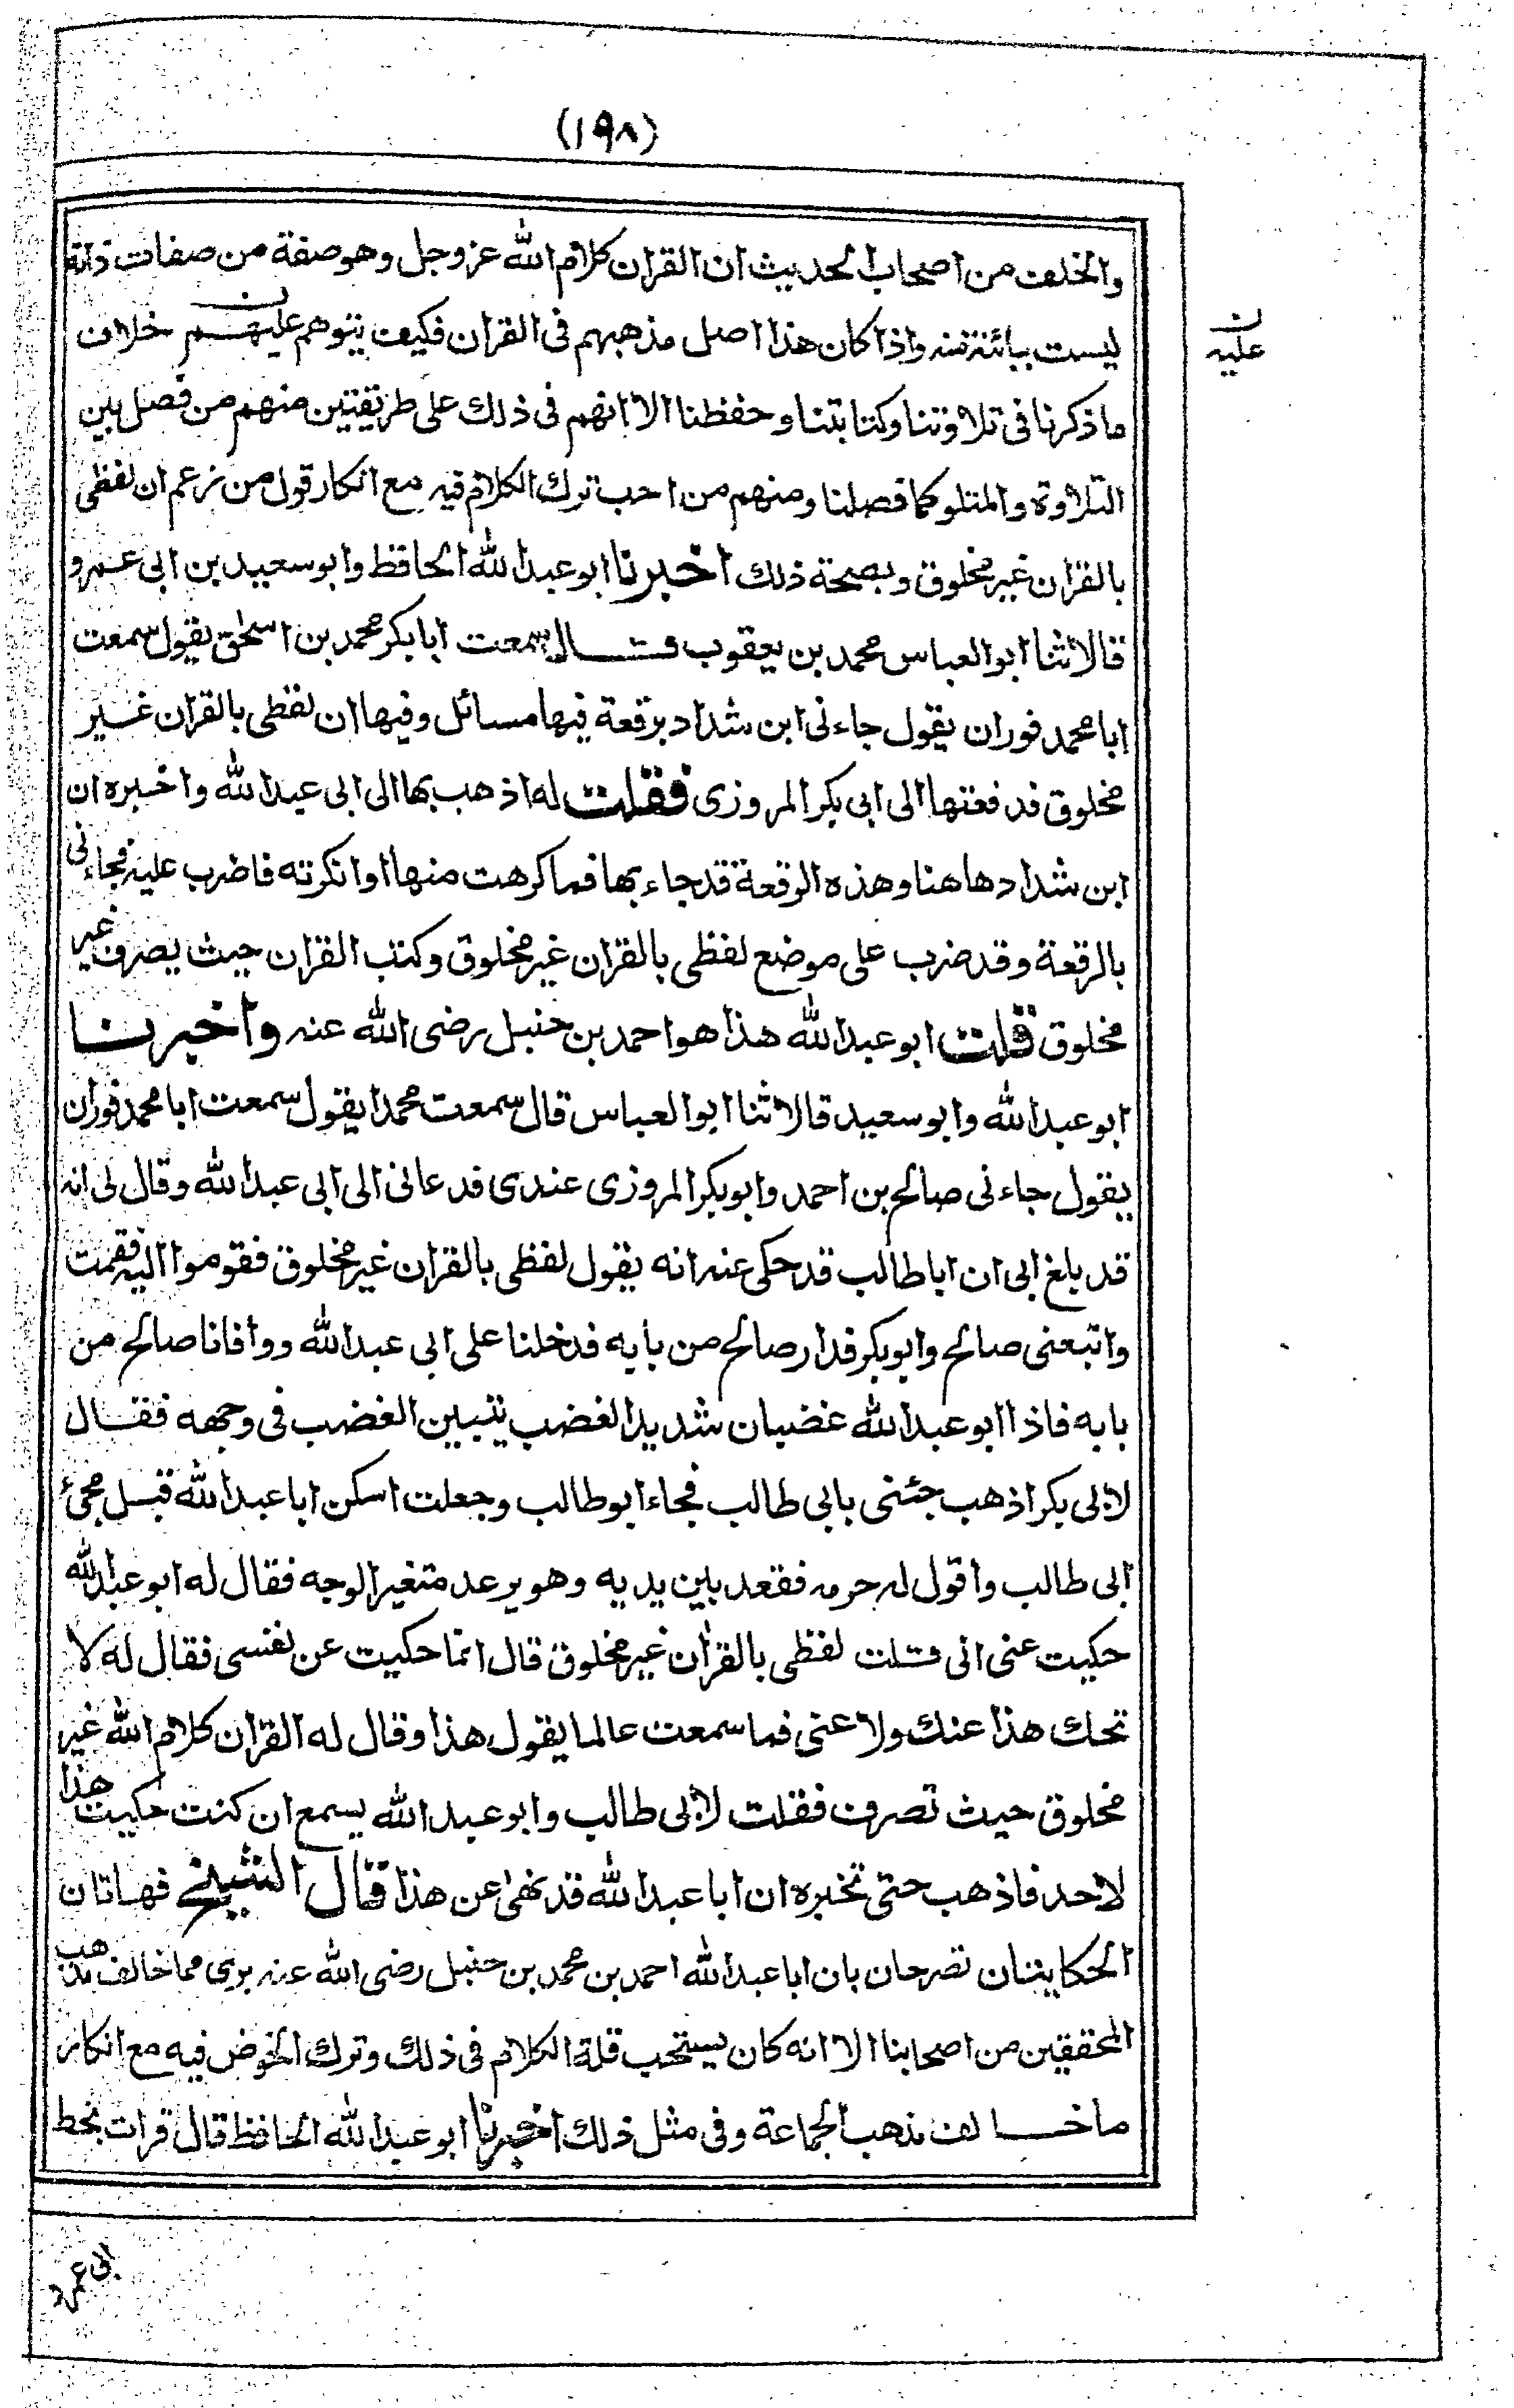 (١٩٨)
والخلف من اصحاب الحديث ان القران كلام الله عز وجل وهو صفة من صفات ذاته
ليست ببائنة منه واذا كان هذا اصل مذهبهم فى القران فكيف يتوهم عليهم خلاف
ن
عليه
ما ذكرنا فى تلاوتنا وكتابتنا وحفظنا الا انهم فى ذلك على طريقتين منهم من فصل بين
التلاوة والمتلو كما فصلنا ومنهم من احب ترك الكلام فيه مع انكار قول من زعم ان لفظى
بالقران غير مخلوق وبصحة ذلك اخبرنا ابو عبد الله الحافظ وابو سعيد بن ابى عمرو
قالا ثنا ابو العباس محمد بن يعقوب قال سمعت ابا بكر محمد بن اسحٰق يقول سمعت
ابا محمد فوران يقول جاءنى ابن شداد برقعة فيها مسائل وفيها ان لفظى بالقران غير
مخلوق فدفعتها الى ابى بكر المروزى فقلت له اذهب بها الى ابى عبد الله واخبره ان
ابن شداد هاهنا وهذه الرقعة قد جاء بها فما كرهت منها او انكرته فاضرب عليه فجاءنى
بالرقعة وقد ضرب على موضع لفظى بالقران غير مخلوق وكتب القران حيث يصرف غير
مخلوق قلت ابو عبد الله هذا هو احمد بن حنبل رضى الله عنه واخبرنا
ابو عبد الله وابو سعيد قالا ثنا ابو العباس قال سمعت محمدا يقول سمعت ابا محمد فوران
يقول جاءنى صالح بن احمد وابو بكر المروزى عندى فدعانى الى ابى عبد الله وقال لى انه
قد بلغ ابى ان ابا طالب قد حكى عنه انه يقول لفظى بالقران غير مخلوق فقوموا اليه فقمت
واتبعنى صالح وابو بكر فدار صالح من بابه فدخلنا على ابى عبد الله ووافانا صالح من
بابه فاذا ابو عبد الله غضبان شديد الغضب يتبين الغضب فى وجهه فقال
لابى بكر اذهب جئنى بابى طالب فجاء ابو طالب وجعلت اسكن ابا عبد الله قبل مجئ
ابى طالب واقول له حرمه فقعد بين يديه وهو يرعد متغير الوجه فقال له ابو عبد الله
حكيت عنى انى قلت لفظى بالقرٰان غير مخلوق قال انما حكيت عن نفسى فقال له لا
تحك هذا عنك ولا عنى فما سمعت عالما يقول هذا وقال له القران كلام الله غير
مخلوق حيث تصرف فقلت لابى طالب وابو عبد الله يسمع ان كنت حكيت هذا
لاحد فاذهب حتى تخبره ان ابا عبد الله قد نهى عن هذا قال الشيخ فهاتان
الحكايتان تصرحان بان ابا عبد الله احمد بن محمد بن حنبل رضى الله عنه برى مما خالف مذهب
المحققين من اصحابنا الا انه كان يستحب قلة الكلام فى ذلك وترك الخوض فيه مع انكار
ما خالف مذهب الجماعة وفى مثل ذلك اخبرنا ابو عبد الله الحافظ قال قرات بخط
ابى عمرو